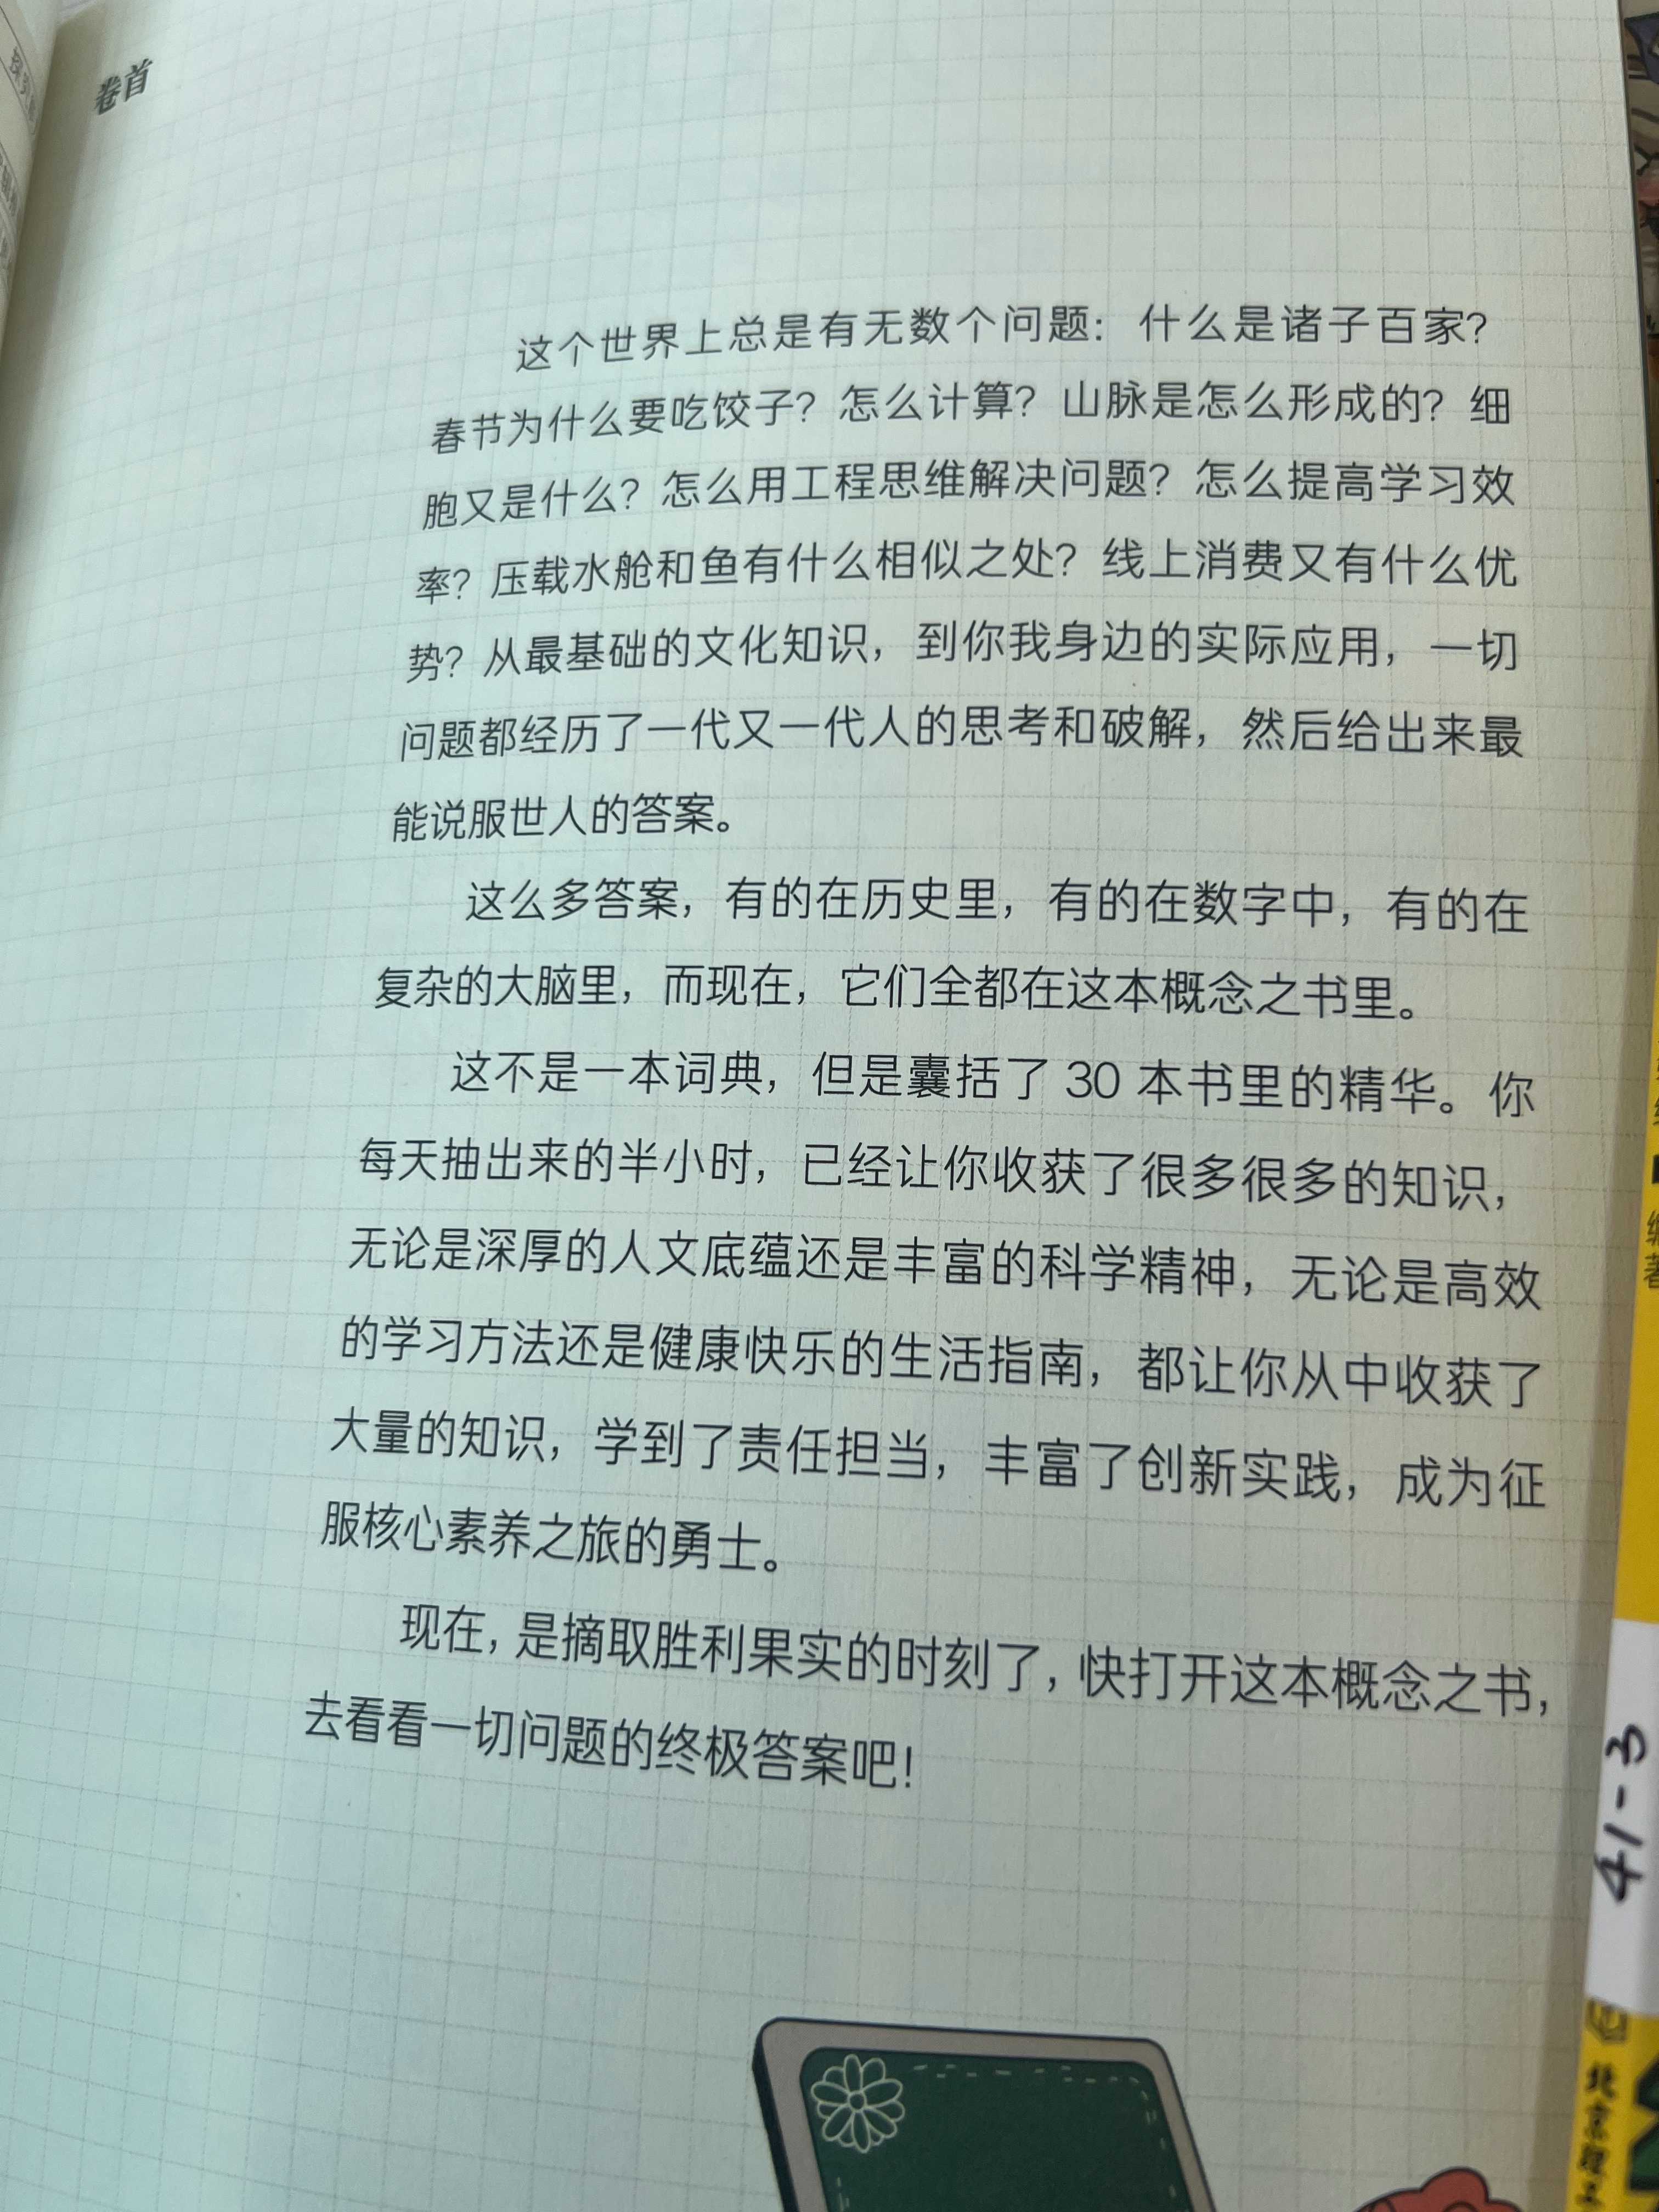 卷首
这个世界上总是有无数个问题：什么是诸子百家？
春节为什么要吃饺子？怎么计算？山脉是怎么形成的？细
胞又是什么？怎么用工程思维解决问题？怎么提高学习效
率？压载水舱和鱼有什么相似之处？线上消费又有什么优
势？从最基础的文化知识，到你我身边的实际应用，一切
问题都经历了一代又一代人的思考和破解，然后给出来最
能说服世人的答案。
这么多答案，有的在历史里，有的在数字中，有的在
复杂的大脑里，而现在，它们全都在这本概念之书里。
这不是一本词典，但是囊括了 30 本书里的精华。你
每天抽出来的半小时，已经让你收获了很多很多的知识，
无论是深厚的人文底蕴还是丰富的科学精神，无论是高效
的学习方法还是健康快乐的生活指南，都让你从中收获了
大量的知识，学到了责任担当，丰富了创新实践，成为征
服核心素养之旅的勇士。
现在，是摘取胜利果实的时刻了，快打开这本概念之书，
去看看一切问题的终极答案吧！
编著
41-3
北京理工